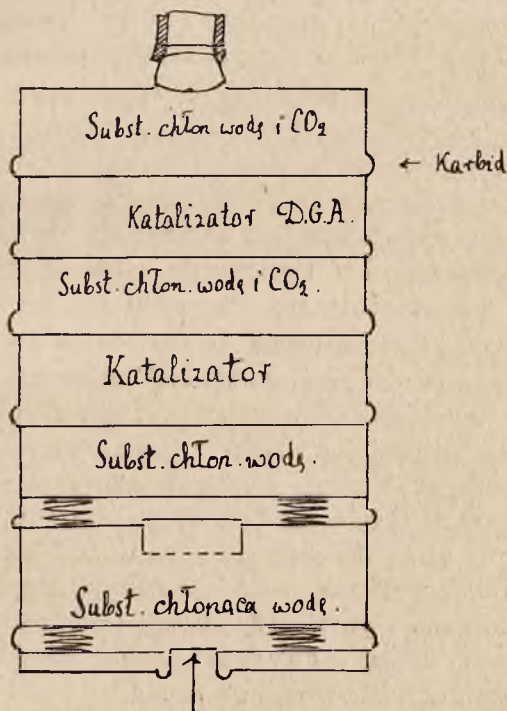 Subst. chłon wodę i CO₂
← Karbid
Katalizator D.G.A.
Subst. chłon. wodę i CO₂.
Katalizator
Subst. chłon. wodę.
Subst. chłonąca wodę.